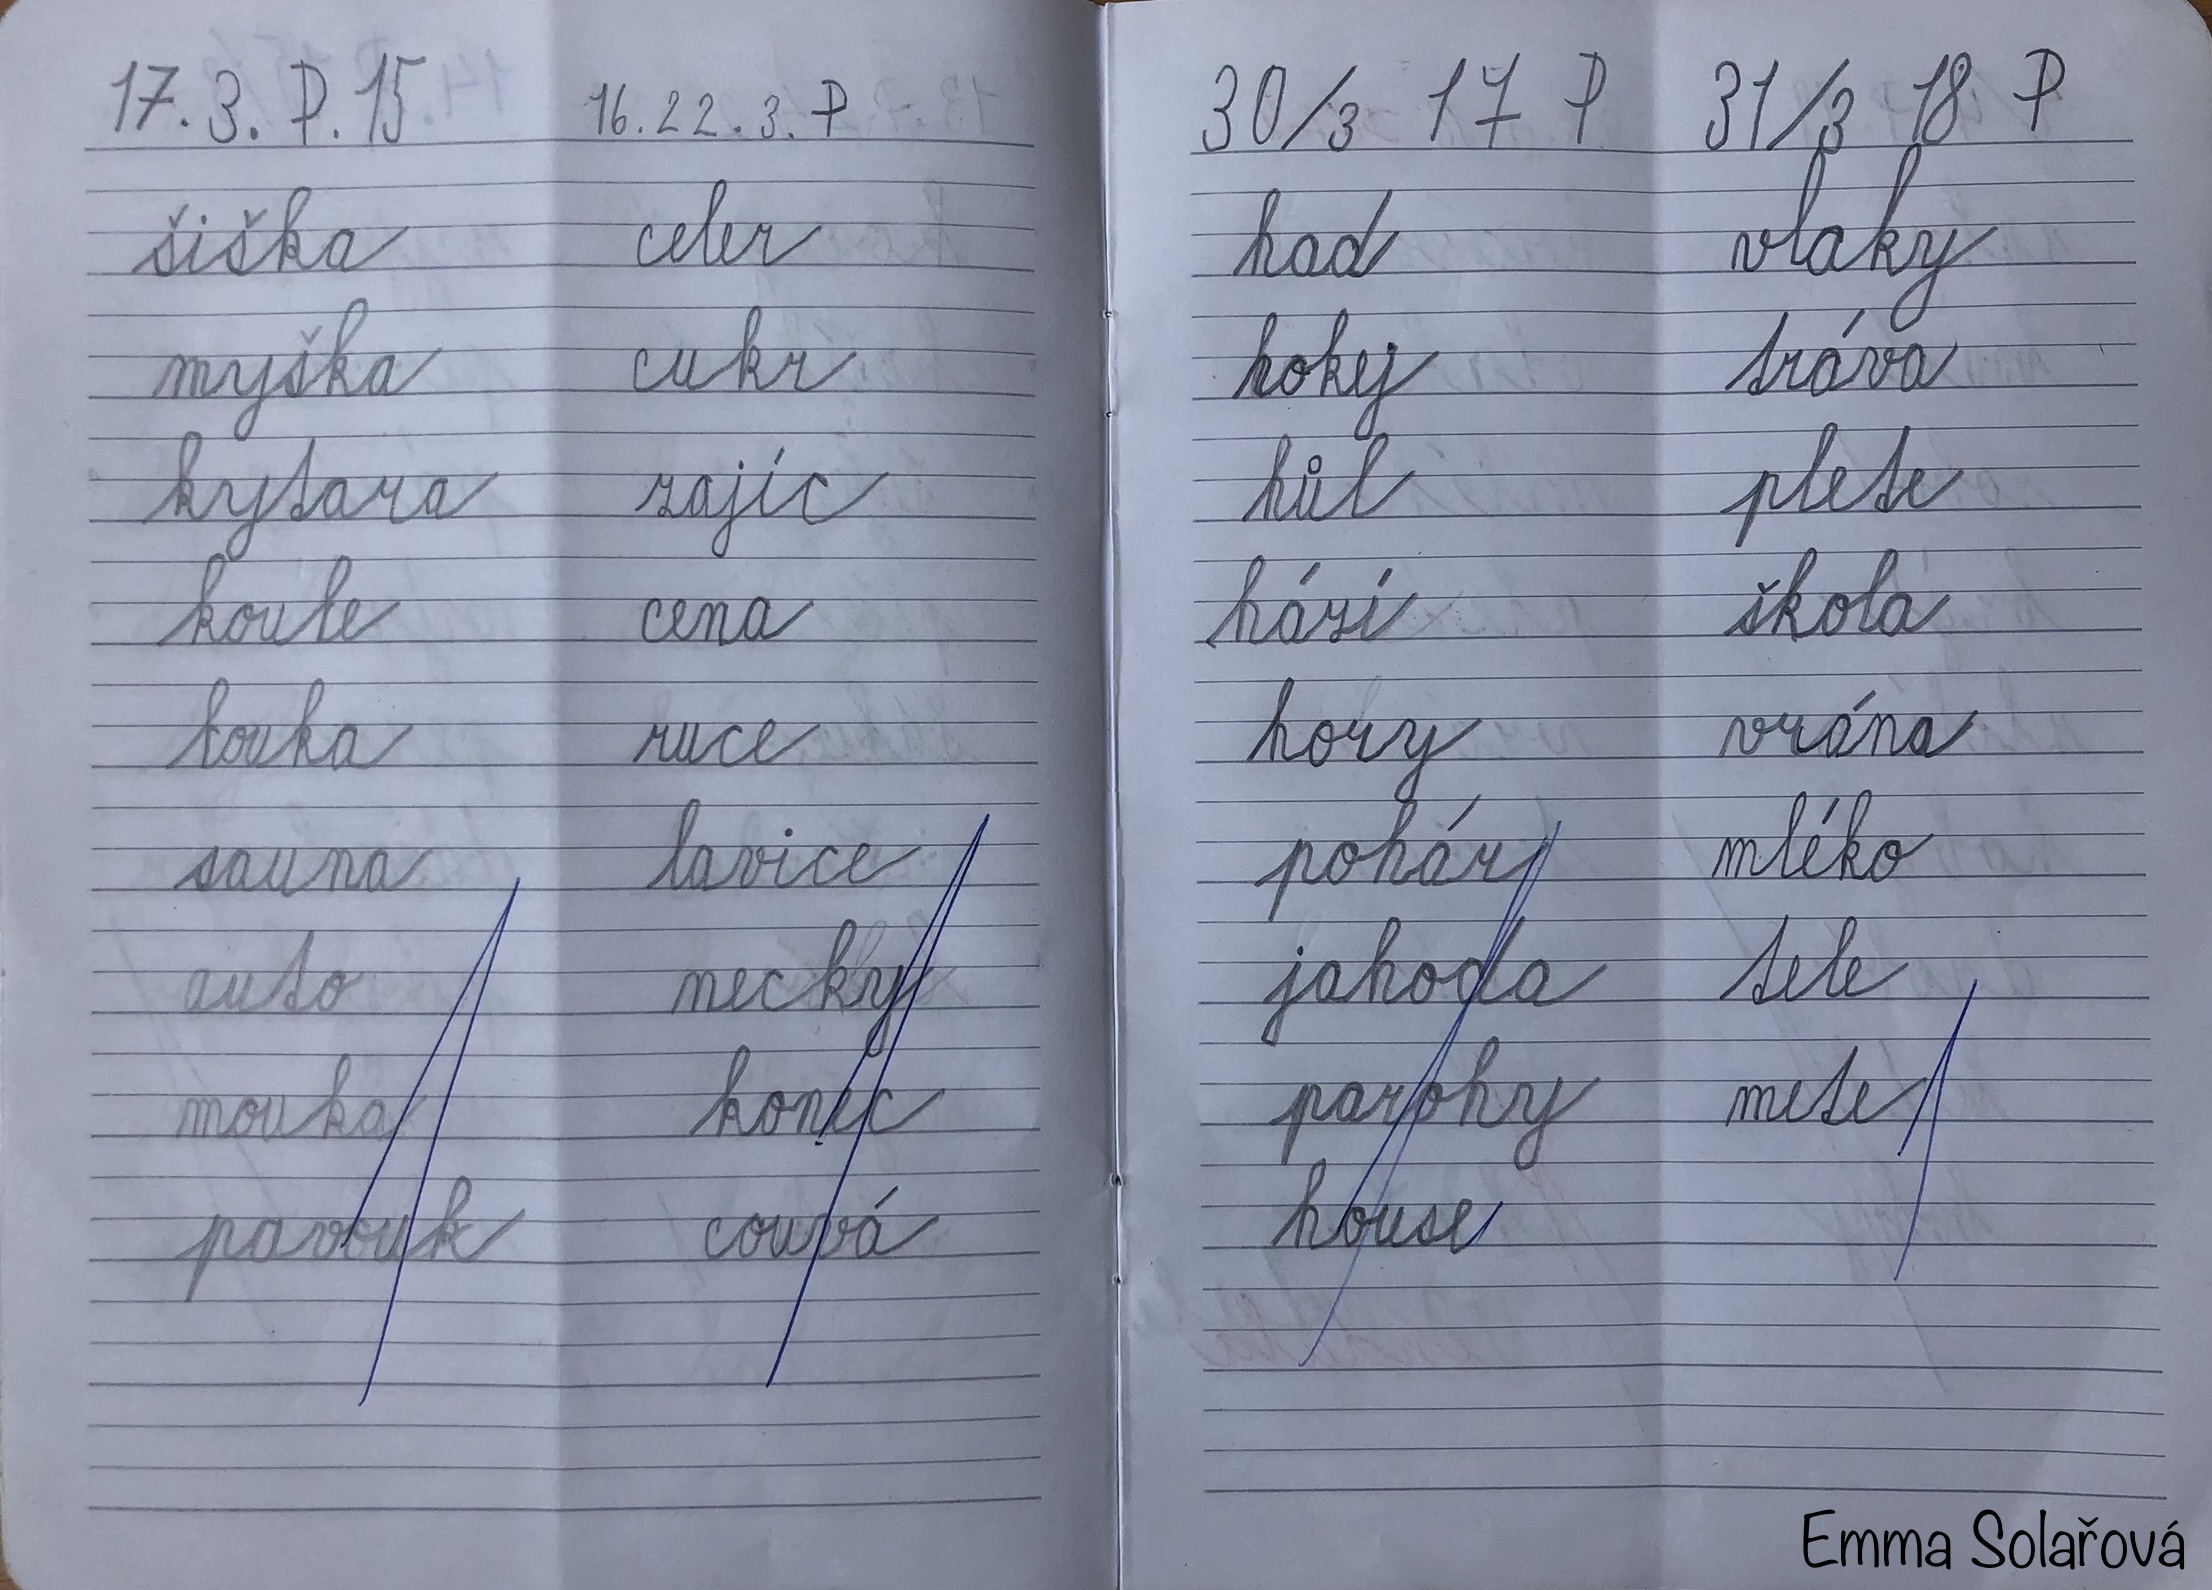 17. 3. P. 15
šiška
myška
kytara
koule
louka
sauna
auto
mouka
pavouk
16. 22. 3. P
celer
cukr
zajíc
cena
ruce
lavice
necky
konec
couvá
30/3 17 P
had
hokej
hůl
hází
hory
pohár
jahoda
parohy
house
31/3 18 P
vlaky
tráva
plete
škola
vrána
mléko
tele
mete
Emma Solařová